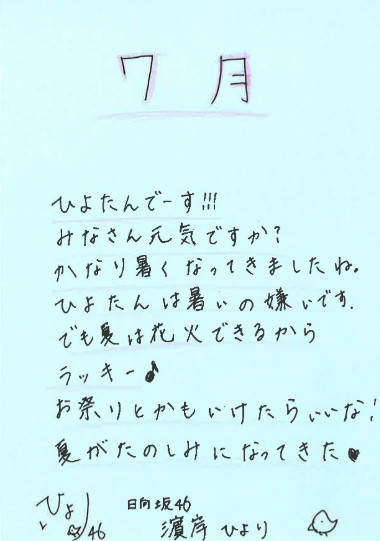 7月
ひよたんでーす!!!
みなさん元気ですか?
かなり暑くなってきましたね。
ひよたんは暑いの嫌いです.
でも夏は花火できるから
ラッキー♪
お祭りとかもいけたらいいな!
夏がたのしみになってきた♥
ひより 46
日向坂46
濱岸 ひより